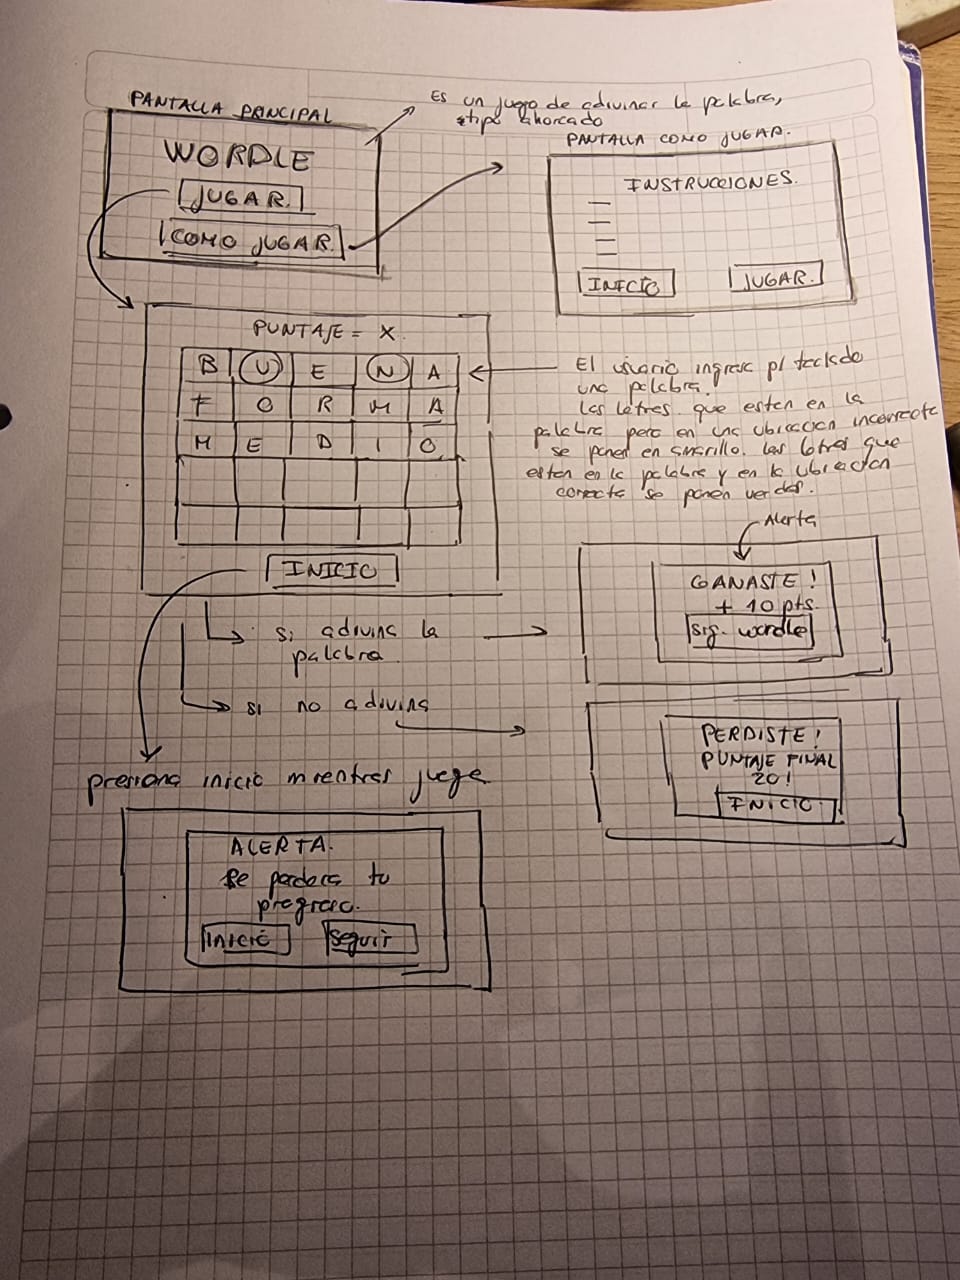 PANTALLA PRINCIPAL
Es un juego de adivinar la palabra,
tipo ahorcado
WORDLE
JUGAR.
COMO JUGAR.
PANTALLA COMO JUGAR.
INSTRUCCIONES.
INICIO
JUGAR.
PUNTAJE = X.
B U E N A
F O R M A
M E D I O
INICIO
El usuario ingresa p/ teclado
una palabra.
Las letras que esten en la
palabra pero en una ubicacion incorrecta
se ponen en amarillo. Las letras que
esten en la palabra y en la ubicacion
correcta se ponen verdes.
Alerta
GANASTE!
+ 10 pts.
sig. wordle
si adivina la
palabra.
si no adivina
PERDISTE!
PUNTAJE FINAL
20!
INICIO.
presiona inicio mientras juega
ALERTA.
Se perdera tu
progreso.
INICIO
seguir